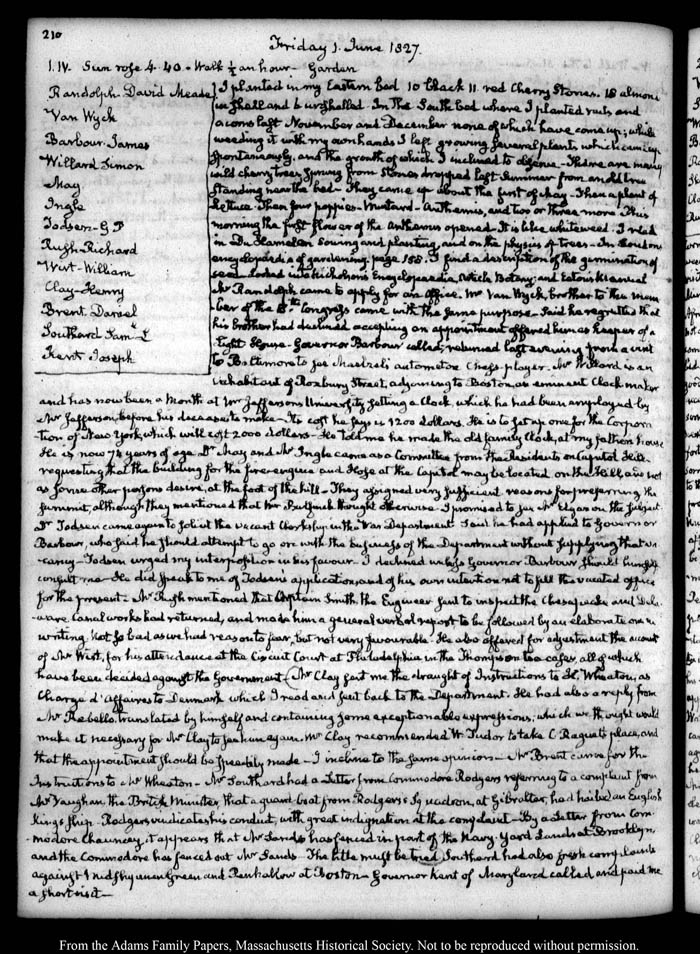 210
Friday 1. June 1827.
I. IV. Sun rose 4.40. Walk ½ an hour. Garden
Randolph. David Meade
Van Wyck
Barbour. James
Willard Simon
May
Ingle
Todson. G P
Rush-Richard
Wirt-William
Clay-Henry
Brent Daniel
Southard Sam.l L
Kent Joseph
I planted in my Eastern bed 10 black 11 red Cherry Stones. 18 almonds
in shell and 6 unshelled. In the South bed where I planted nuts and
acorns last November and December none of which have come up; while
weeding it with my own hands I left growing several plants which came up
spontaneously, and the growth of which I inclined to observe. There are many
wild cherry trees sprung from stones dropped last Summer from an old tree
standing near the bed. They came up about the first of May. Then a plant of
lettuce. Then four poppies. Mustard. Anthemis, and two or three more. This
morning the first flower of the anthemis opened. It is like whiteweed. I read
in Du Hamel on sowing and planting, and on the physics of trees. In Loudon's
encyclopaedia of gardening. page 158. I find a description of the germination of
seed. Looked into Nicholson's Encyclopaedia, Article Botany, and Eaton's Manual
Mr Randolph came to apply for an office. Mr Van Wyck, brother to the mem
ber of the Congress came with the same purpose. Said he regretted that
his brother had declined accepting an appointment offered him as keeper of a
light House. Governor Barbour called; returned last evening from a visit
to Baltimore to see Maelzel's automaton Chess-player. Mr Willard is an
inhabitant of Roxbury Street, adjoining to Boston, an eminent Clock maker
and has now been a month at Mr Jefferson's University setting a Clock, which he had been employed by
Mr Jefferson, before his decease to make. Its cost he says is 1200 dollars. He is to set up one for the Corpora
tion of New York, which will cost 2000 dollars. He tells me he made the old family Clock, at my father's house
He is now 74 years of age. Dr May and Mr Ingle came as a Committee from the Residents on Capitol Hill
requesting that the building for the fire-engine and Hose at the Capitol may be located on the Hill, and not
as some other persons desire, at the foot of the hill. They assigned very sufficient reasons for preferring the
summit, although they mentioned that Mr Bulfinch thought otherwise. I promised to see Mr Elgar on the subject
Dr Todson came again to solicit the vacant Clerkship in the War Department. Said he had applied to Governor
Barbour, who said he should attempt to go on with the business of the Department without supplying that va
cancy. Todson urged my interposition in his favour. I declined unless Governor Barbour should himself
consult me. He did speak to me of Todson's application, and of his own intention not to fill the vacated office
for the present. Mr Rush mentioned that Captain Smith, the Engineer sent to inspect the Chesapeake and Dela
ware Canal works had returned, and made him a general verbal report to be followed by an elaborate one in
writing. Not so bad as we had reason to fear, but not very favourable. He also offered for adjustment the account
of Mr Wirt, for his attendance at the Circuit Court at Philadelphia in the Thompson tea cases, all of which
have been decided against the Government. Mr Clay sent me the draught of Instructions to H. Wheaton, as
Chargé d'Affaires to Denmark which I read and sent back to the Department. He had also a reply from
Mr Rebello, translated by himself and containing some exceptionable expressions, which we thought would
make it necessary for Mr Clay to see him again. Mr Clay recommended W. Tudor to take C Raguet's place, and
that the appointment should be speedily made. I incline to the same opinion. Mr Brent came for the
Instructions to Mr Wheaton. Mr Southard had a Letter from Commodore Rodgers referring to a complaint from
Mr Vaughan the British Minister, that a guard boat from Rodgers's Squadron, at Gibraltar, had hailed an English
King's ship. Rodgers vindicates his conduct, with great indignation at the complaint. By a Letter from Com
modore Chauncey, it appears that Mr Sands has fenced in part of the Navy-Yard Lands at Brooklyn,
and the Commodore has fenced out Mr Sands. The title must be tried. Southard had also fresh complaints
against Midshipman Green and Penhallow at Boston. Governor Kent of Maryland called and paid me
a short visit.
From the Adams Family Papers, Massachusetts Historical Society. Not to be reproduced without permission.